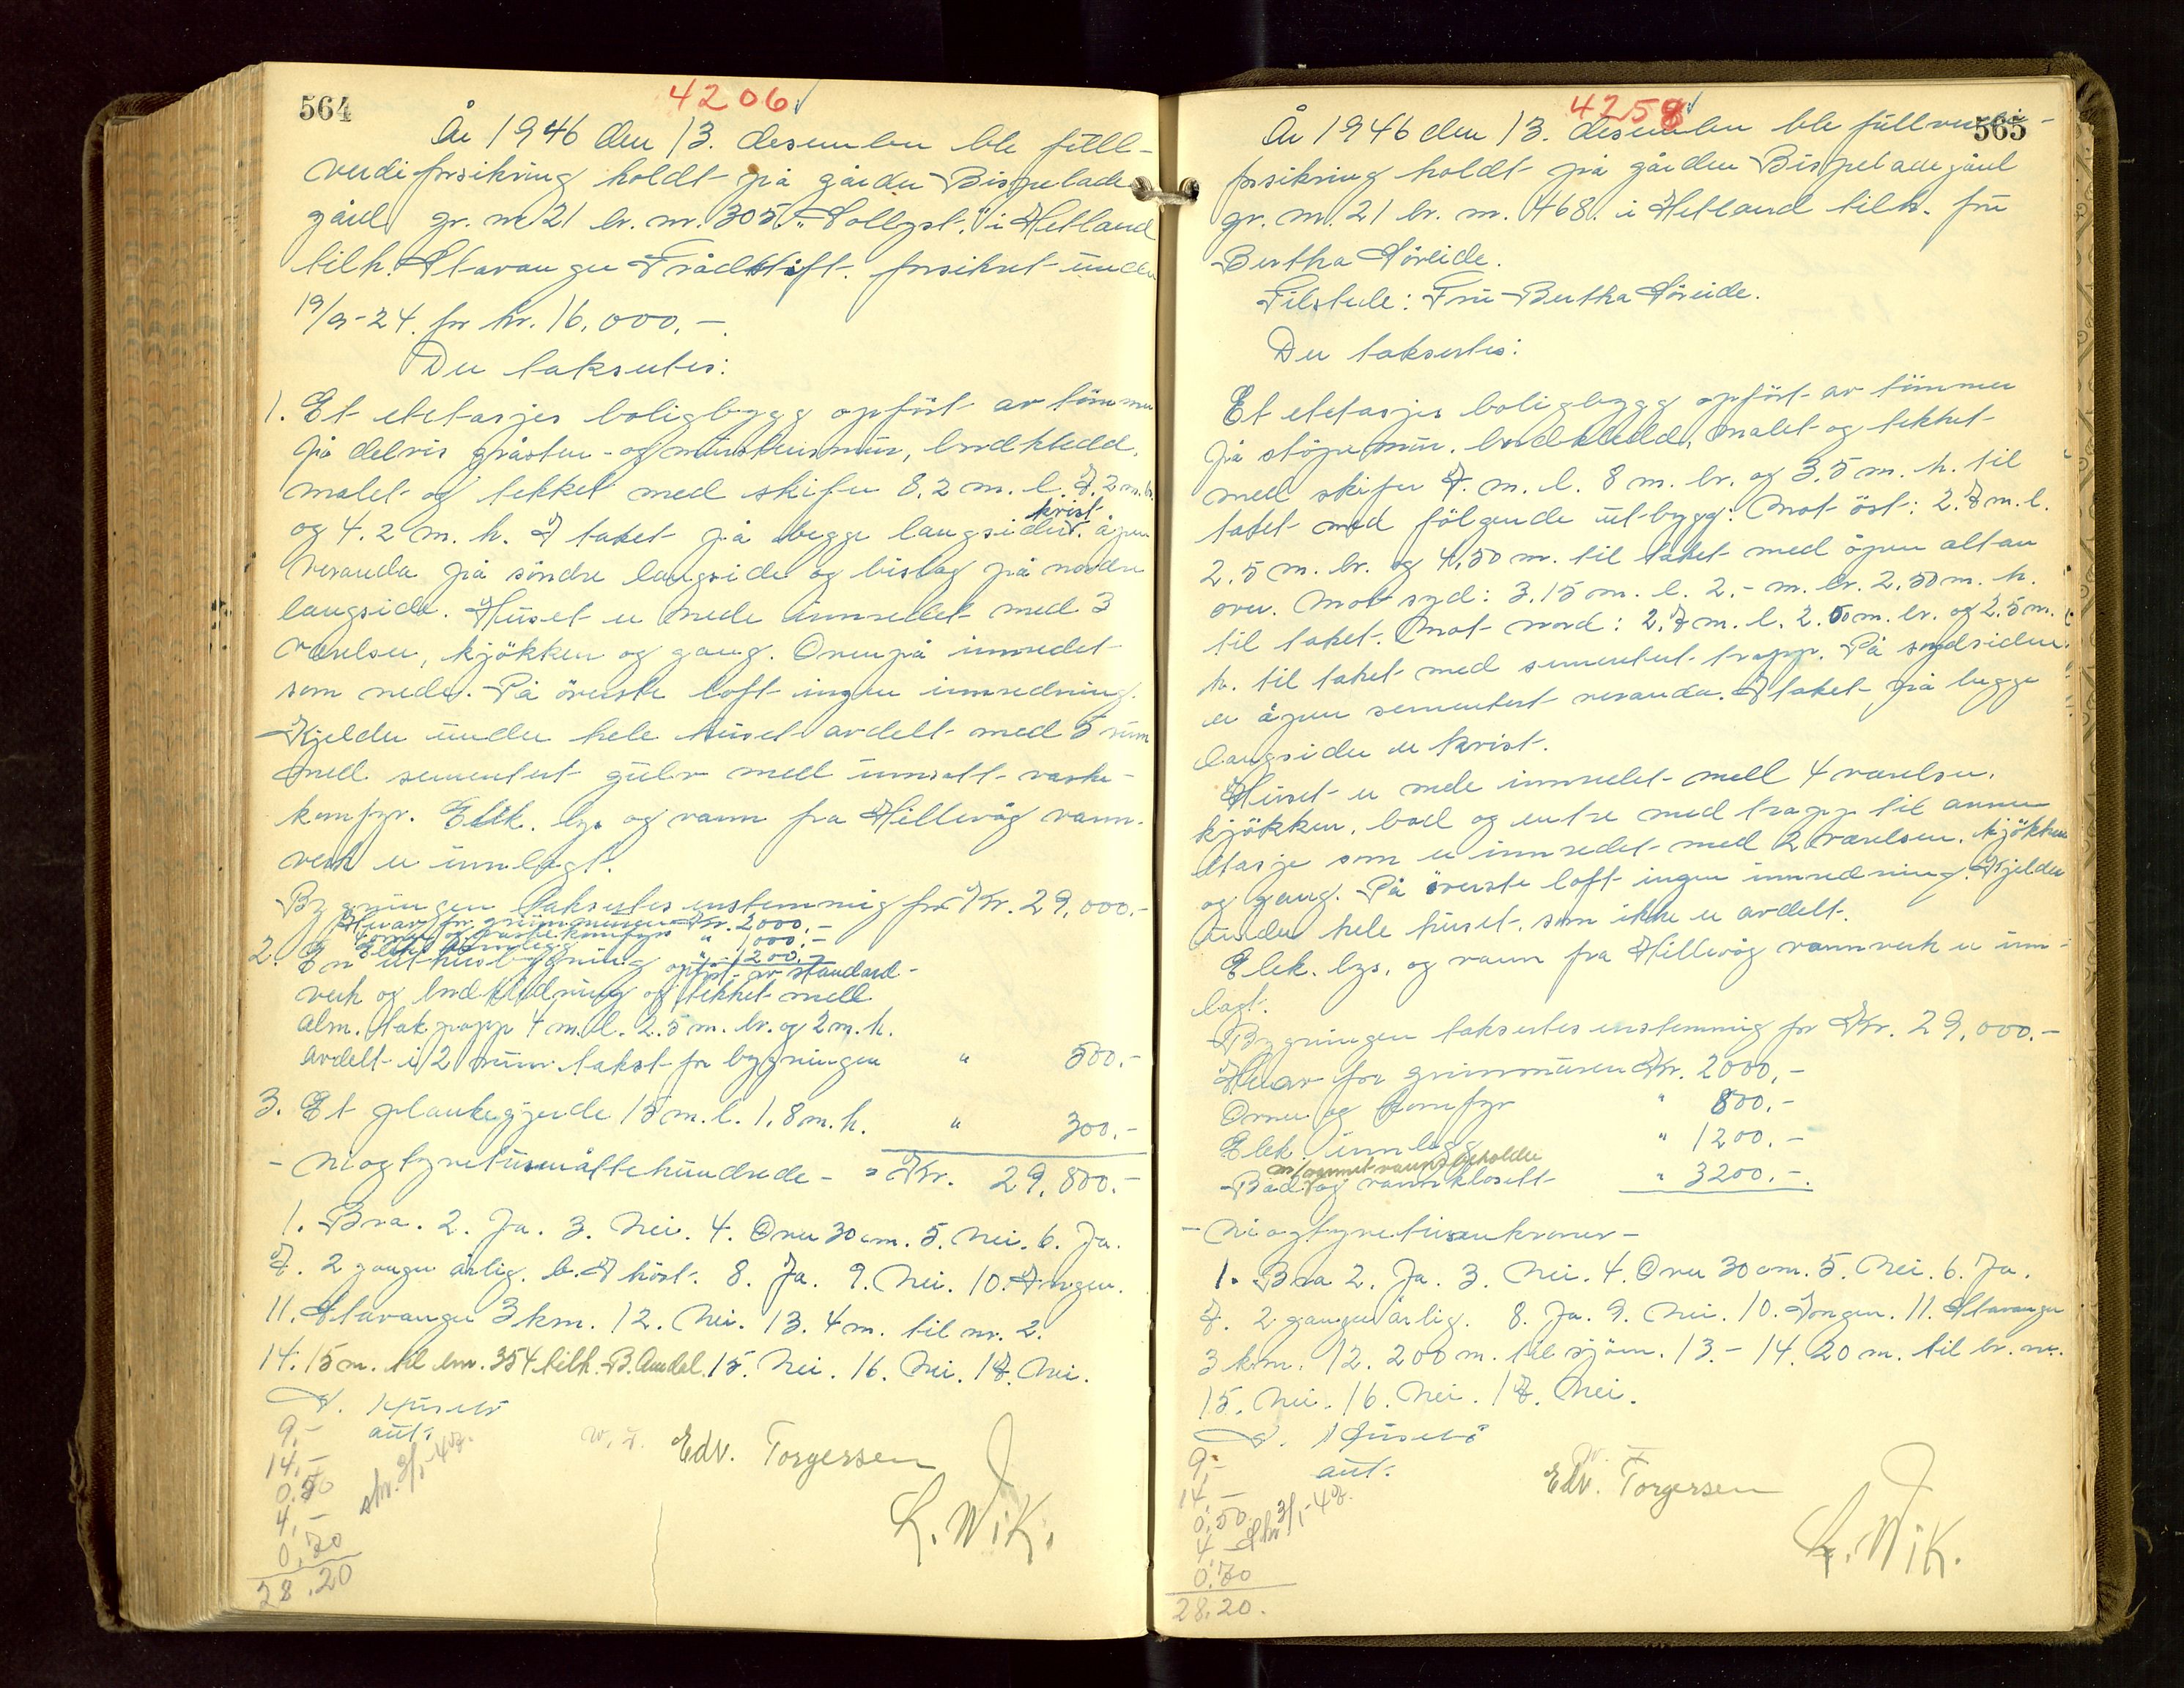 564
4206
År 1946 den 13. desember ble full-
verdiforsikring holdt på gården Bispelade
gård gr. nr 21 br. nr. 305. "Solbyst." i Hetland
tilh. Stavanger forsikret under
19/9-24. for kr. 16.000.-.
Der takseres:
1. Et etetasjes boligbygg opført av tømmer
på delvis gråsten- og murstensmur, bordkledd,
malet og tekket med skifer 8.2 m. l. 7.2 m. br.
og 4.2 m. h. I taket på begge langsider kvist. åpen
veranda på søndre langside og bislag på nordre
langside. Huset er nede innredet med 3
værelser, kjøkken og gang. Ovenpå innredet
som nede. På øverste loft ingen innredning.
Kjelder under hele huset avdelt med 5 rum
med sementert gulv med innsatt vaske-
komfyr. Elek. lys og vann fra Hillevåg vann-
verk er innlagt.
Bygningen takseres enstemmig for Kr. 29,000.-
Herav for grunnmuren Kr. 2000.-
ovner og vaskekomfyr " 1000.-
Elek. innlegg " 1200.-
2. En uthusbygning opført av standard-
verk og bordkledning og tekket med
alm. takpapp 4 m. l. 2.5 m. br. og 2 m. h.
avdelt i 2 rum. takst for bygningen " 500.-
3. Et plankegjerde 15 m. l. 1.8 m. h. " 300.-
- Niogtyvetusenåttehundrede - = Kr. 29,800.-
1. Bra. 2. Ja. 3. Nei. 4. Over 30 cm. 5. Nei. 6. Ja.
7. 2 ganger årlig. b. I høst. 8. Ja. 9. Nei. 10. Ingen.
11. Stavanger 3 km. 12. Nei. 13. 4 m. til nr. 2.
14. 15 m. til bnr. 354 tilh. B. Aadal. 15. Nei. 16. Nei. 17. Nei.
9.-
aut:
14.-
0.50
skr. 3/1-47.
4.-
0.70
28.20
Edv. Torgersen
L. Wik.
565
4258
År 1946 den 13. desember ble fullverdi-
forsikring holdt på gården Bispeladegård
gr. nr. 21 br. nr. 468. i Hetland tilh. fru
Bertha Søreide.
Tilstede: Fru Bertha Søreide.
Der takseres:
Et etetasjes boligbygg opført av tømmer
på støpemur. bordkledd, malet og tekket
med skifer 7. m. l. 8 m. br. og 3.5 m. h. til
taket med følgende utbygg: Mot øst: 2.7 m. l.
2.5 m. br. og 4,50 m. til taket med åpen altan
over. Mot syd: 3.15 m. l. 2.- m. br. 2.50 m. h.
til taket. Mot nord: 2.7 m. l. 2.50 m. br. og 2.5 m.
h. til taket med sementert trapp. På sydsiden
er åpen sementert veranda. I taket på begge
langsider er kvist.
Huset er nede innredet med 4 værelser.
kjøkken, bad og entre med trapp til annen
etasje som er innredet med 2 værelser, kjøkken
og gang. På øverste loft ingen innredning. Kjelder
under hele huset. som ikke er avdelt.
Elek. lys. og vann fra Hillevåg vannverk er inn-
lagt.
Bygningen takseres enstemmig for Kr. 29,000.-
Herav for grunnmuren Kr. 2000.-
Ovner og komfyr " 800.-
Elek. innlegg " 1200.-
m/varmtvannsbeholder
Bad og vannklosett " 3200.-.
- Niogtyvetusenkroner -
1. Bra 2. Ja. 3. Nei. 4. Over 30 cm. 5. Nei. 6. Ja.
7. 2 ganger årlig. 8. Ja. 9. Nei. 10. Ingen. 11. Stavanger
3 km. 12. 200 m. til sjøen. 13. - 14. 20 m. til br. nr.
15. Nei. 16. Nei. 17. Nei.
9.-
aut:
14.-
0.50
Skr 3/1-47.
4.-
0.70
28.20.
Edv. Torgersen
L. Wik.